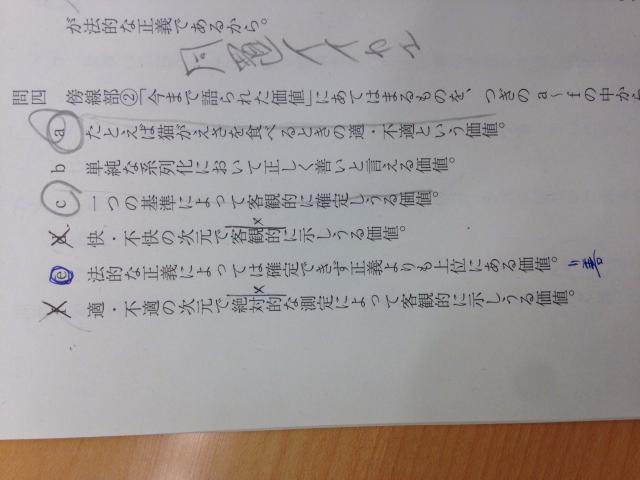 が法的な正義であるから。
問四 傍線部②「今まで語られた価値」にあてはまるものを、つぎのa～fの中から
a たとえば猫がえさを食べるときの適・不適という価値。
b 単純な系列化において正しく善いと言える価値。
c 一つの基準によって客観的に確定しうる価値。
快・不快の次元で客観的に示しうる価値。
e 法的な正義によっては確定できず正義よりも上位にある価値。
適・不適の次元で絶対的な測定によって客観的に示しうる価値。